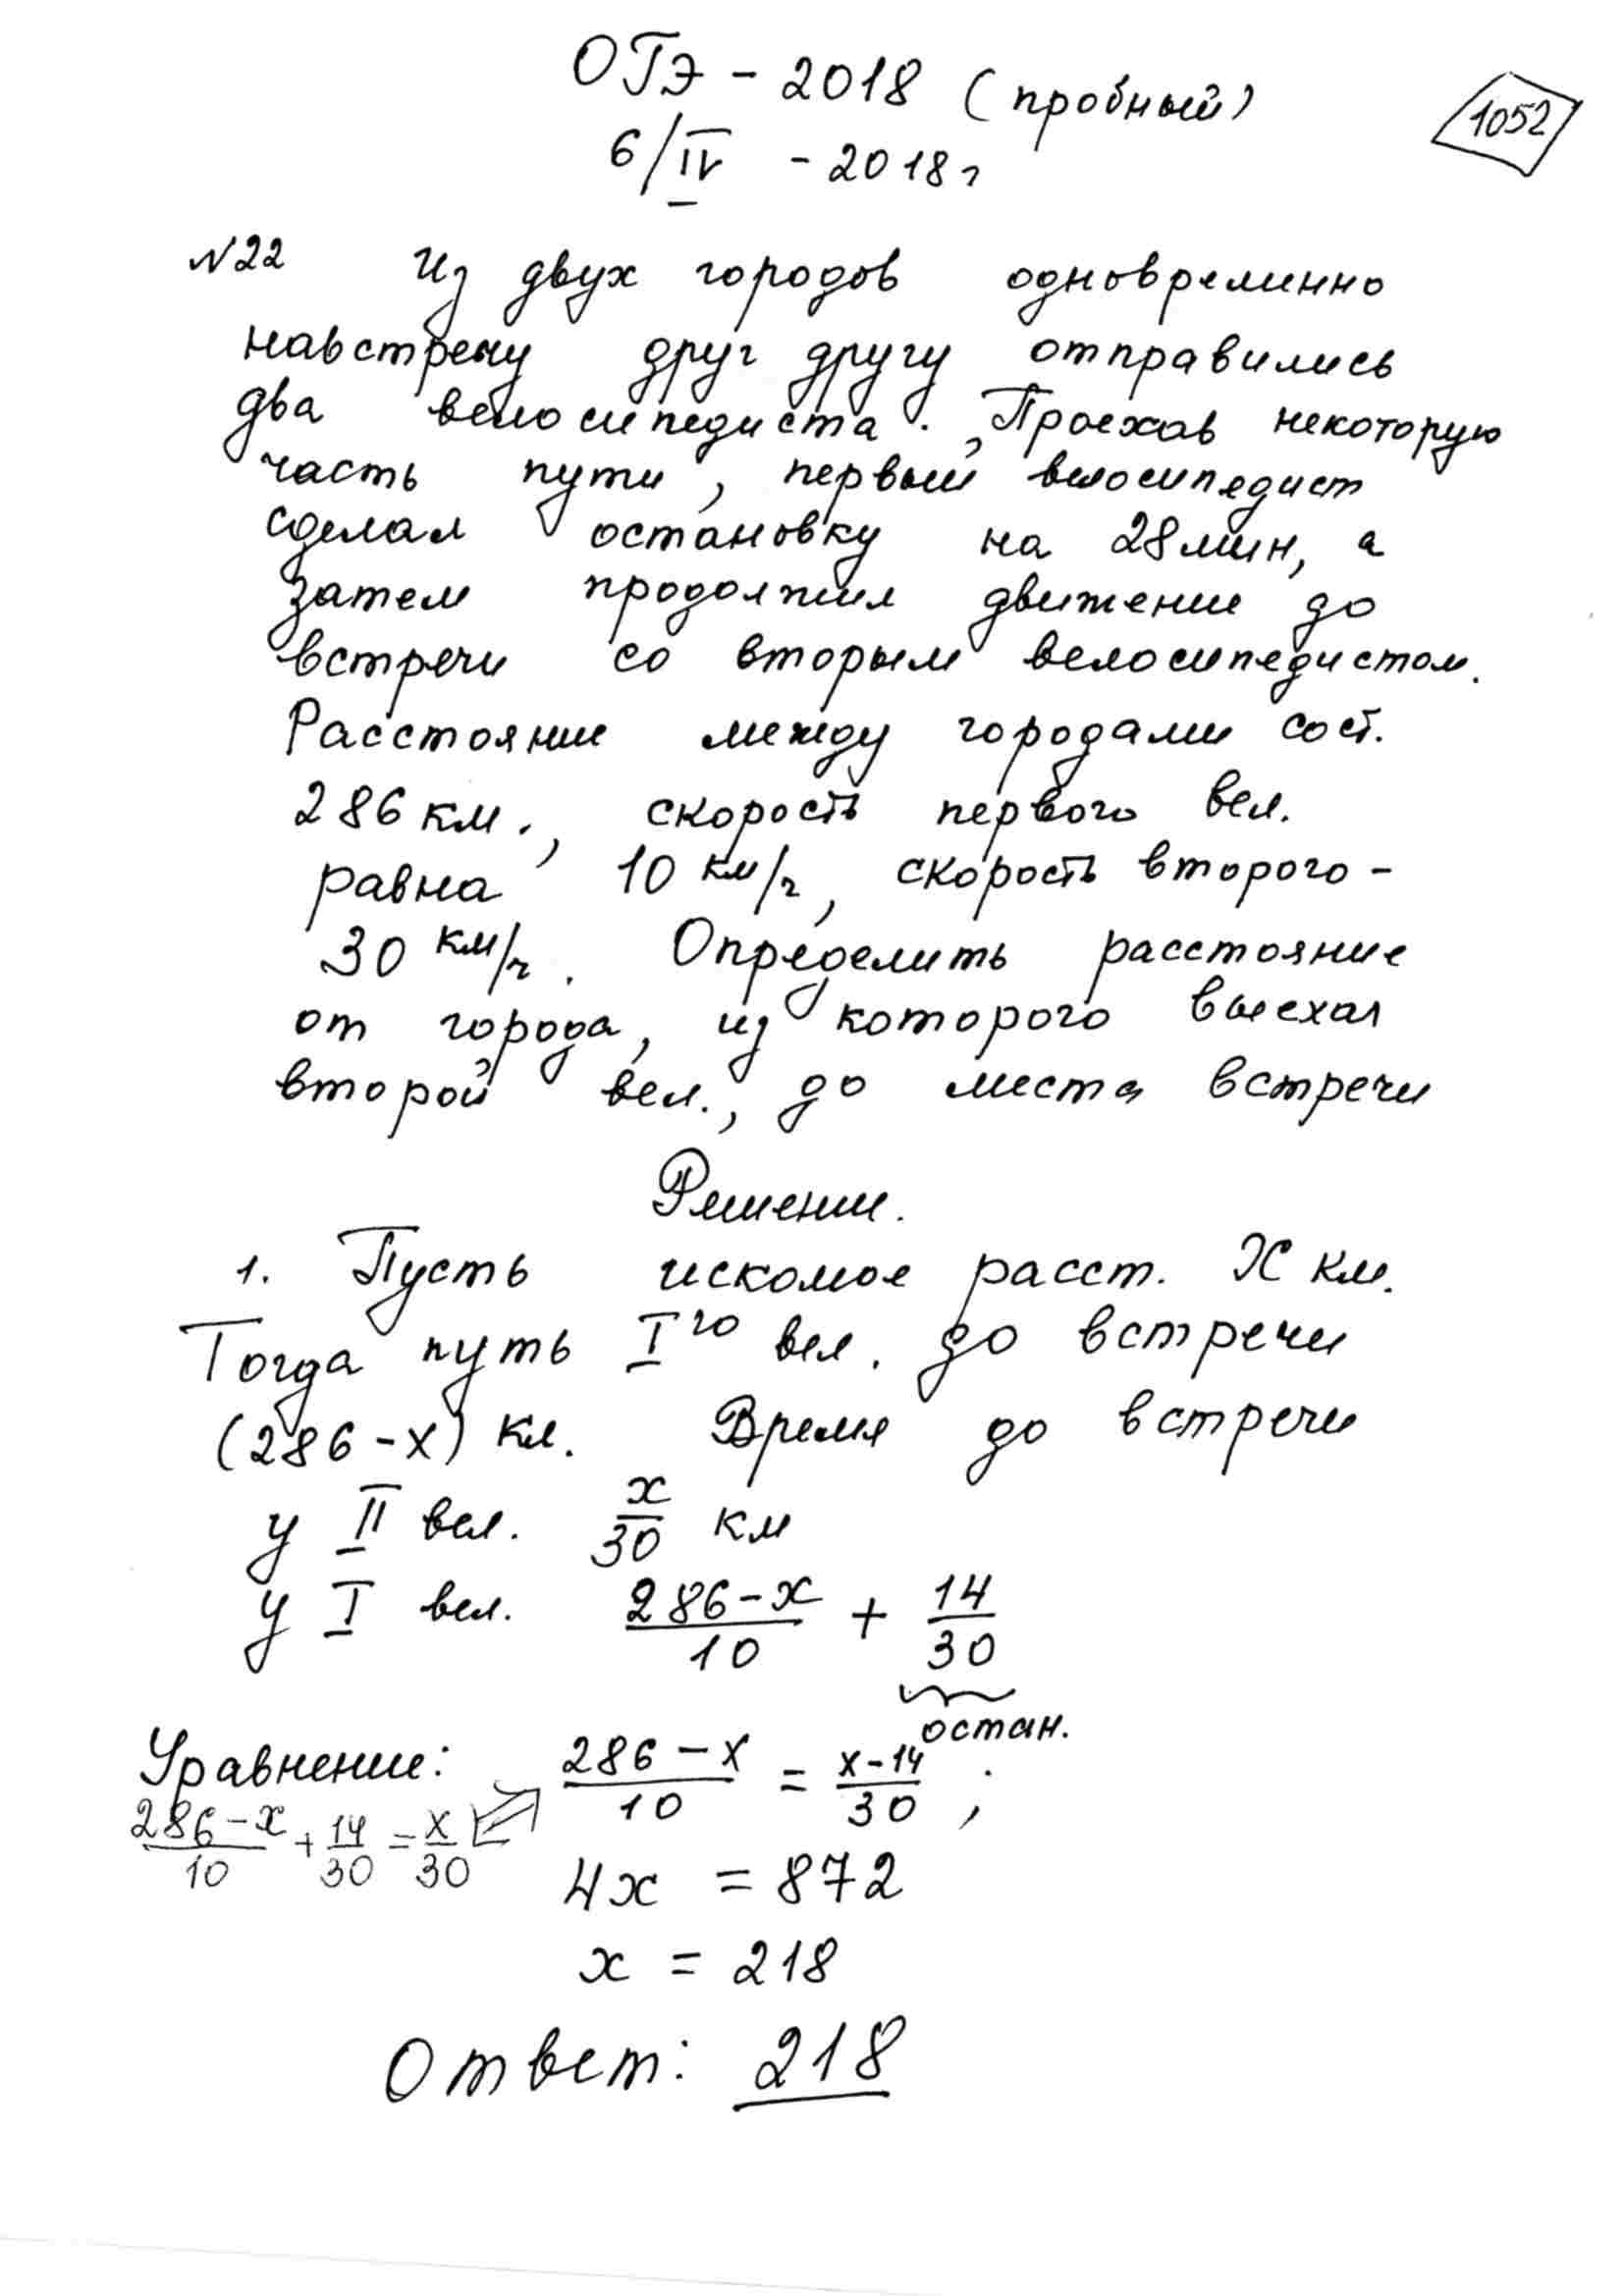 ОГЭ - 2018 (пробный)
1052
6/IV - 2018 г
№22 Из двух городов одновременно
навстречу друг другу отправились
два велосипедиста. Проехав некоторую
часть пути, первый велосипедист
сделал остановку на 28 мин, а
затем продолжил движение до
встречи со вторым велосипедистом.
Расстояние между городами сост.
286 км., скорость первого вел.
равна 10 км/ч, скорость второго -
30 км/ч. Определить расстояние
от города, из которого выехал
второй вел., до места встречи
Решение.
1. Пусть искомое расст. X км.
Тогда путь I го вел. до встречи
(286 - x) км. Время до встречи
у II вел. x/30 км
у I вел. (286 - x)/10 + 14/30
остан.
Уравнение: (286 - x)/10 = (x - 14)/30 ;
(286 - x)/10 + 14/30 = x/30
4x = 872
x = 218
Ответ: 218